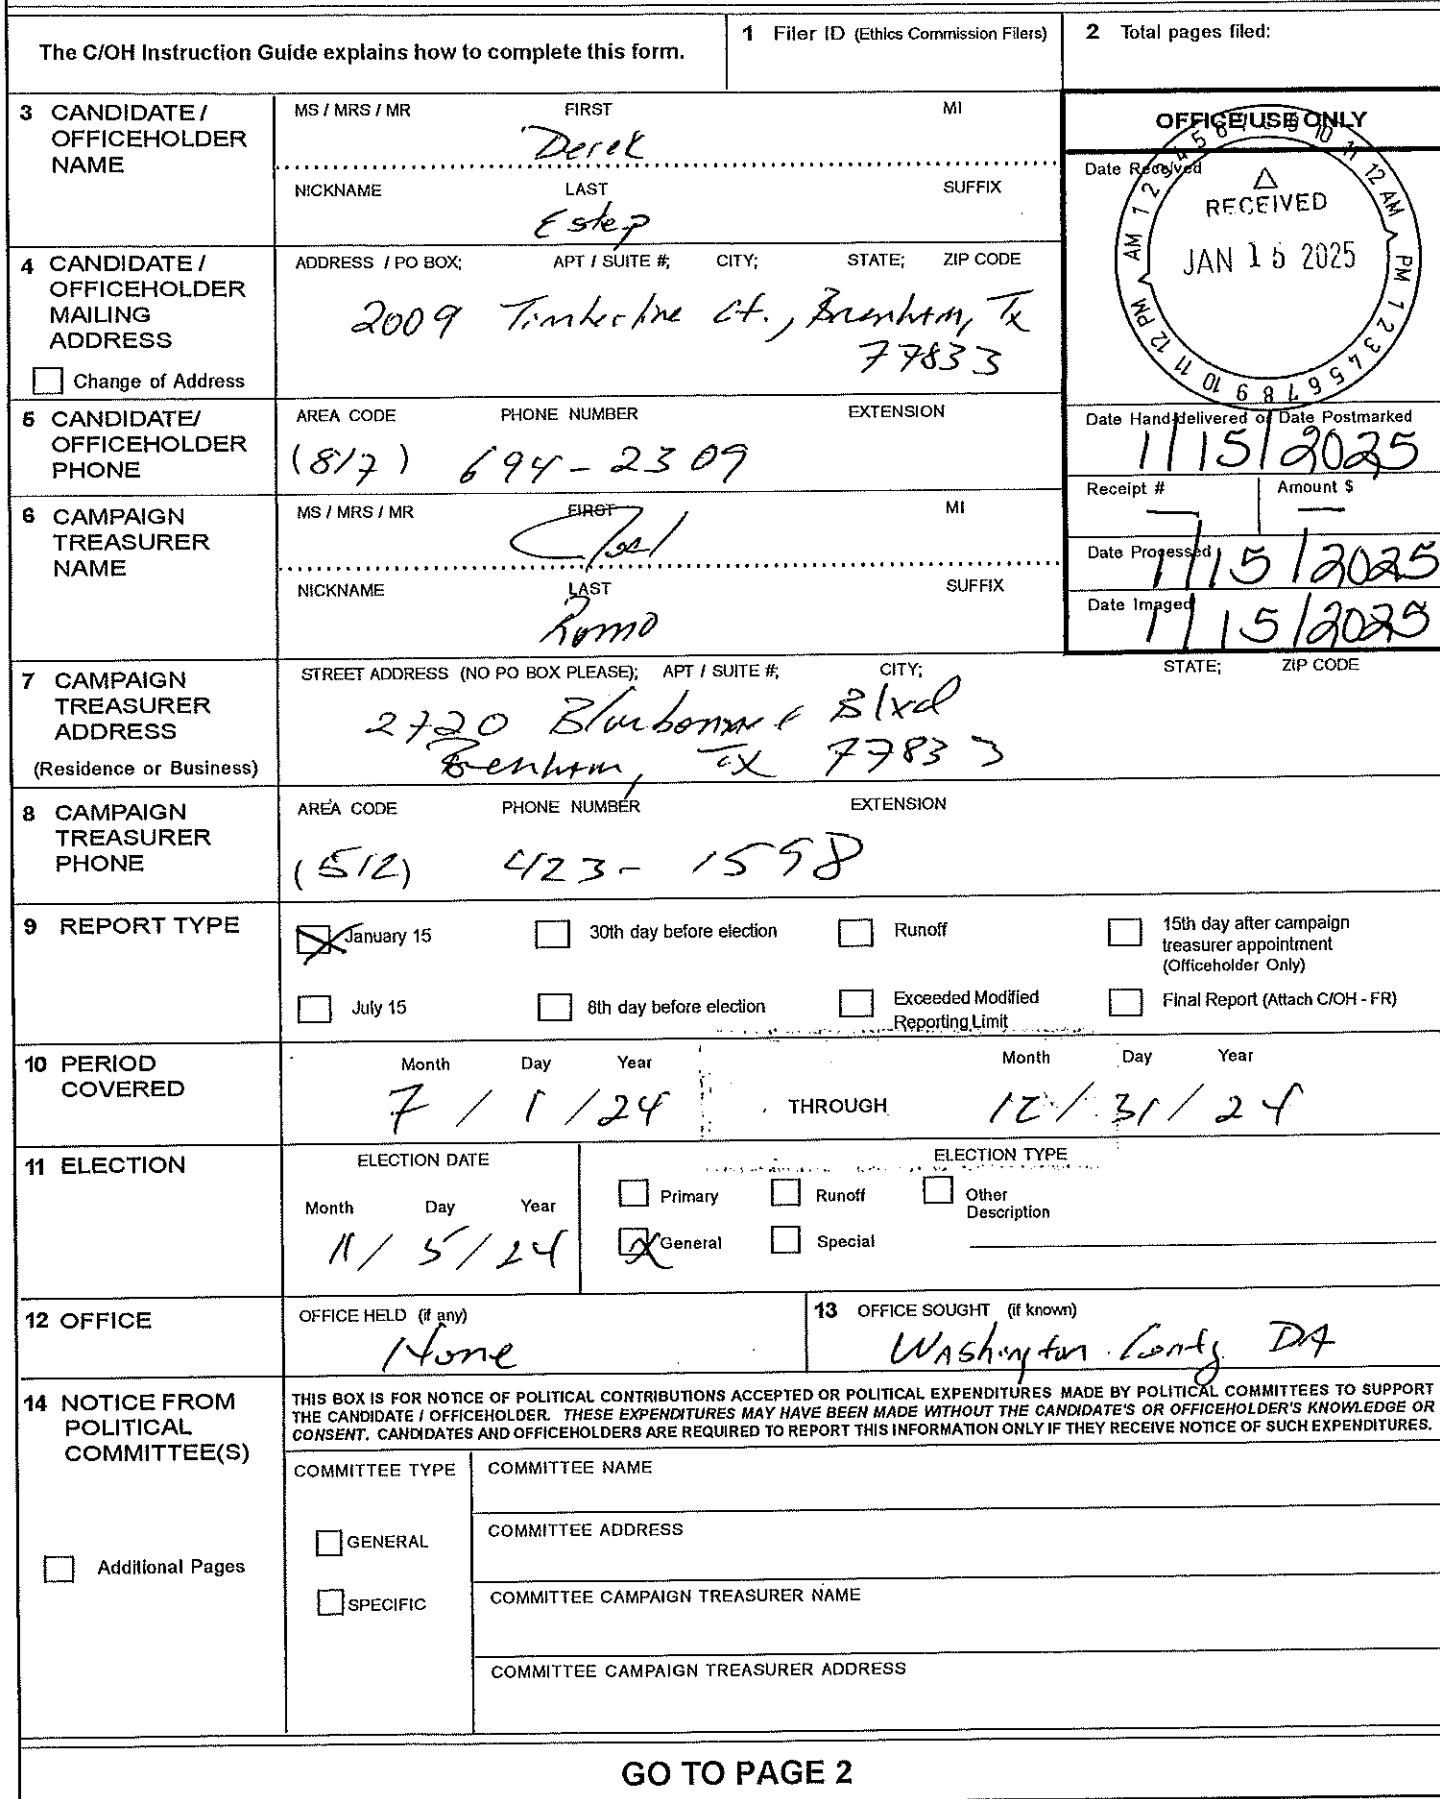 The C/OH Instruction Guide explains how to complete this form.
1 Filer ID (Ethics Commission Filers)
2 Total pages filed:
3 CANDIDATE / OFFICEHOLDER NAME
MS / MRS / MR FIRST MI
Derek
NICKNAME LAST SUFFIX
Estep
OFFICE USE ONLY
Date Received
RECEIVED
JAN 15 2025
AM 1 2 3 4 5 6 7 8 9 10 11 12 AM
PM 1 2 3 4 5 6 7 8 9 10 11 12 PM
4 CANDIDATE / OFFICEHOLDER MAILING ADDRESS
Change of Address
ADDRESS / PO BOX; APT / SUITE #; CITY; STATE; ZIP CODE
2009 Timberline Ct., Brenham, Tx
77833
5 CANDIDATE/ OFFICEHOLDER PHONE
AREA CODE PHONE NUMBER EXTENSION
(817) 694-2309
Date Hand-delivered or Date Postmarked
1/15/2025
Receipt # Amount $
— —
Date Processed
1/15/2025
Date Imaged
1/15/2025
6 CAMPAIGN TREASURER NAME
MS / MRS / MR FIRST MI
Joel
NICKNAME LAST SUFFIX
Romo
7 CAMPAIGN TREASURER ADDRESS
(Residence or Business)
STREET ADDRESS (NO PO BOX PLEASE); APT / SUITE #; CITY; STATE; ZIP CODE
2720 Blvd
Brenham, Tx 77833
8 CAMPAIGN TREASURER PHONE
AREA CODE PHONE NUMBER EXTENSION
(512) 423-1598
9 REPORT TYPE
January 15 30th day before election Runoff 15th day after campaign treasurer appointment (Officeholder Only)
July 15 8th day before election Exceeded Modified Reporting Limit Final Report (Attach C/OH - FR)
10 PERIOD COVERED
Month Day Year Month Day Year
7 / 1 / 24 THROUGH 12 / 31 / 24
11 ELECTION
ELECTION DATE
Month Day Year
11 / 5 / 24
ELECTION TYPE
Primary Runoff Other Description
X General Special
12 OFFICE
OFFICE HELD (if any)
None
13 OFFICE SOUGHT (if known)
Washington County DA
14 NOTICE FROM POLITICAL COMMITTEE(S)
THIS BOX IS FOR NOTICE OF POLITICAL CONTRIBUTIONS ACCEPTED OR POLITICAL EXPENDITURES MADE BY POLITICAL COMMITTEES TO SUPPORT
THE CANDIDATE / OFFICEHOLDER. THESE EXPENDITURES MAY HAVE BEEN MADE WITHOUT THE CANDIDATE'S OR OFFICEHOLDER'S KNOWLEDGE OR
CONSENT. CANDIDATES AND OFFICEHOLDERS ARE REQUIRED TO REPORT THIS INFORMATION ONLY IF THEY RECEIVE NOTICE OF SUCH EXPENDITURES.
COMMITTEE TYPE
GENERAL
SPECIFIC
Additional Pages
COMMITTEE NAME
COMMITTEE ADDRESS
COMMITTEE CAMPAIGN TREASURER NAME
COMMITTEE CAMPAIGN TREASURER ADDRESS
GO TO PAGE 2